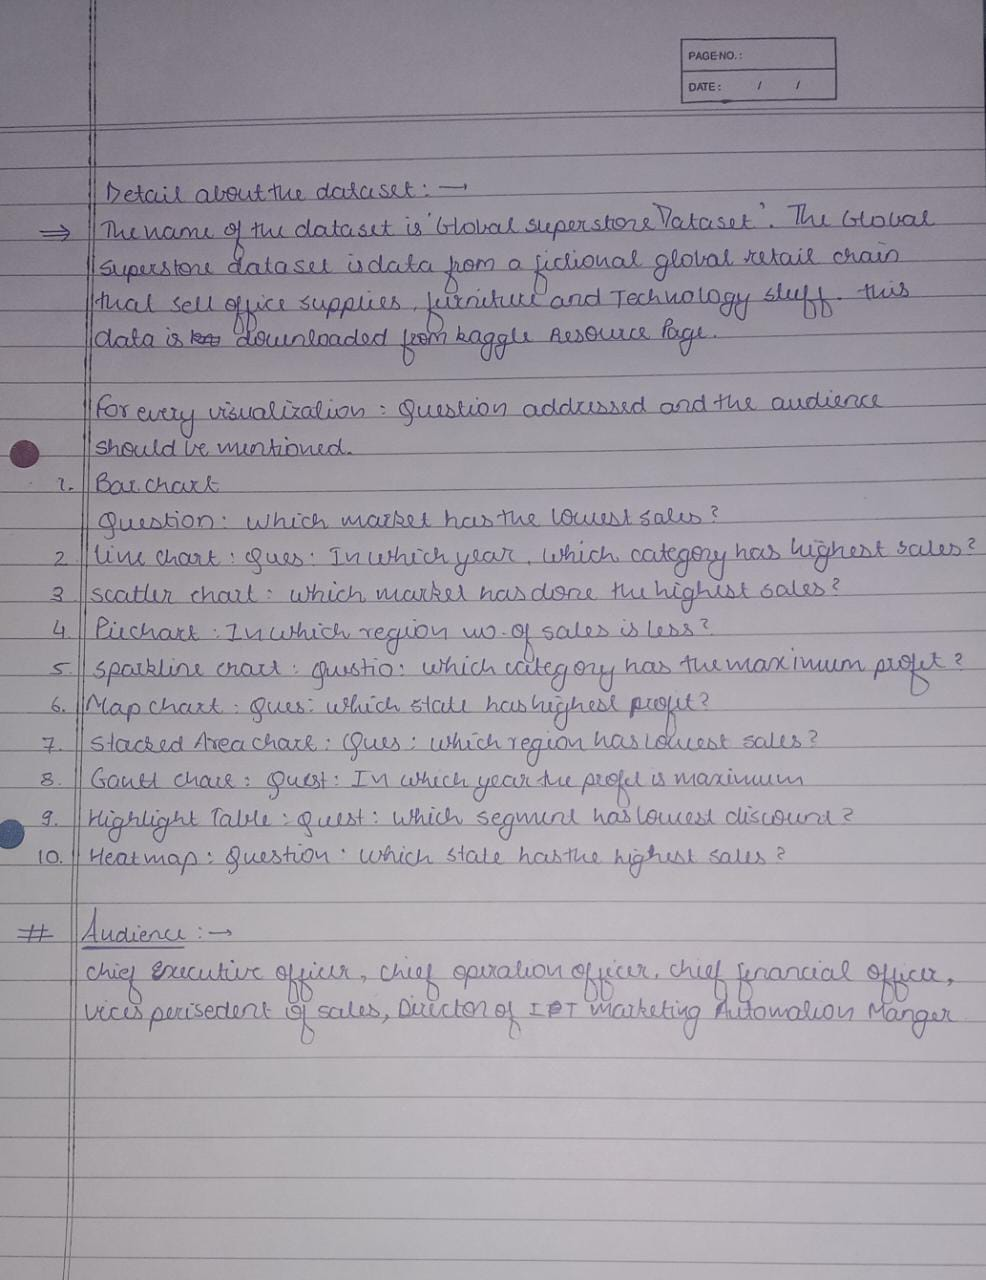 PAGE NO.:
DATE: / /
Detail about the dataset: →
⇒ The name of the dataset is 'Global superstore Dataset'. The Global
superstore dataset is data from a fictional global retail chain
that sell office supplies, furniture and Technology stuff. this
data is downloaded from kaggle Resource Page.
For every visualization: Question addressed and the audience
should be mentioned.
1. Bar chart
Question: which market has the lowest sales?
2 line chart: Ques: In which year, which category has highest sales?
3 scatter chart: which market has done the highest sales?
4. Piechart: In which region no. of sales is less?
5. sparkline chart: Questio: which category has the maximum profit?
6. Map chart: Ques: which state has highest profit?
7. Stacked Area chart: Ques: which region has lowest sales?
8. Gantt chart: Quest: In which year the profit is maximum
9. Highlight Table: Quest: which segment has lowest discount?
10. Heatmap: Question: which state has the highest sales?
# Audience: →
chief Executive officer, chief operation officer, chief financial officer,
vices perisedent of sales, Director of Marketing Automation Manger